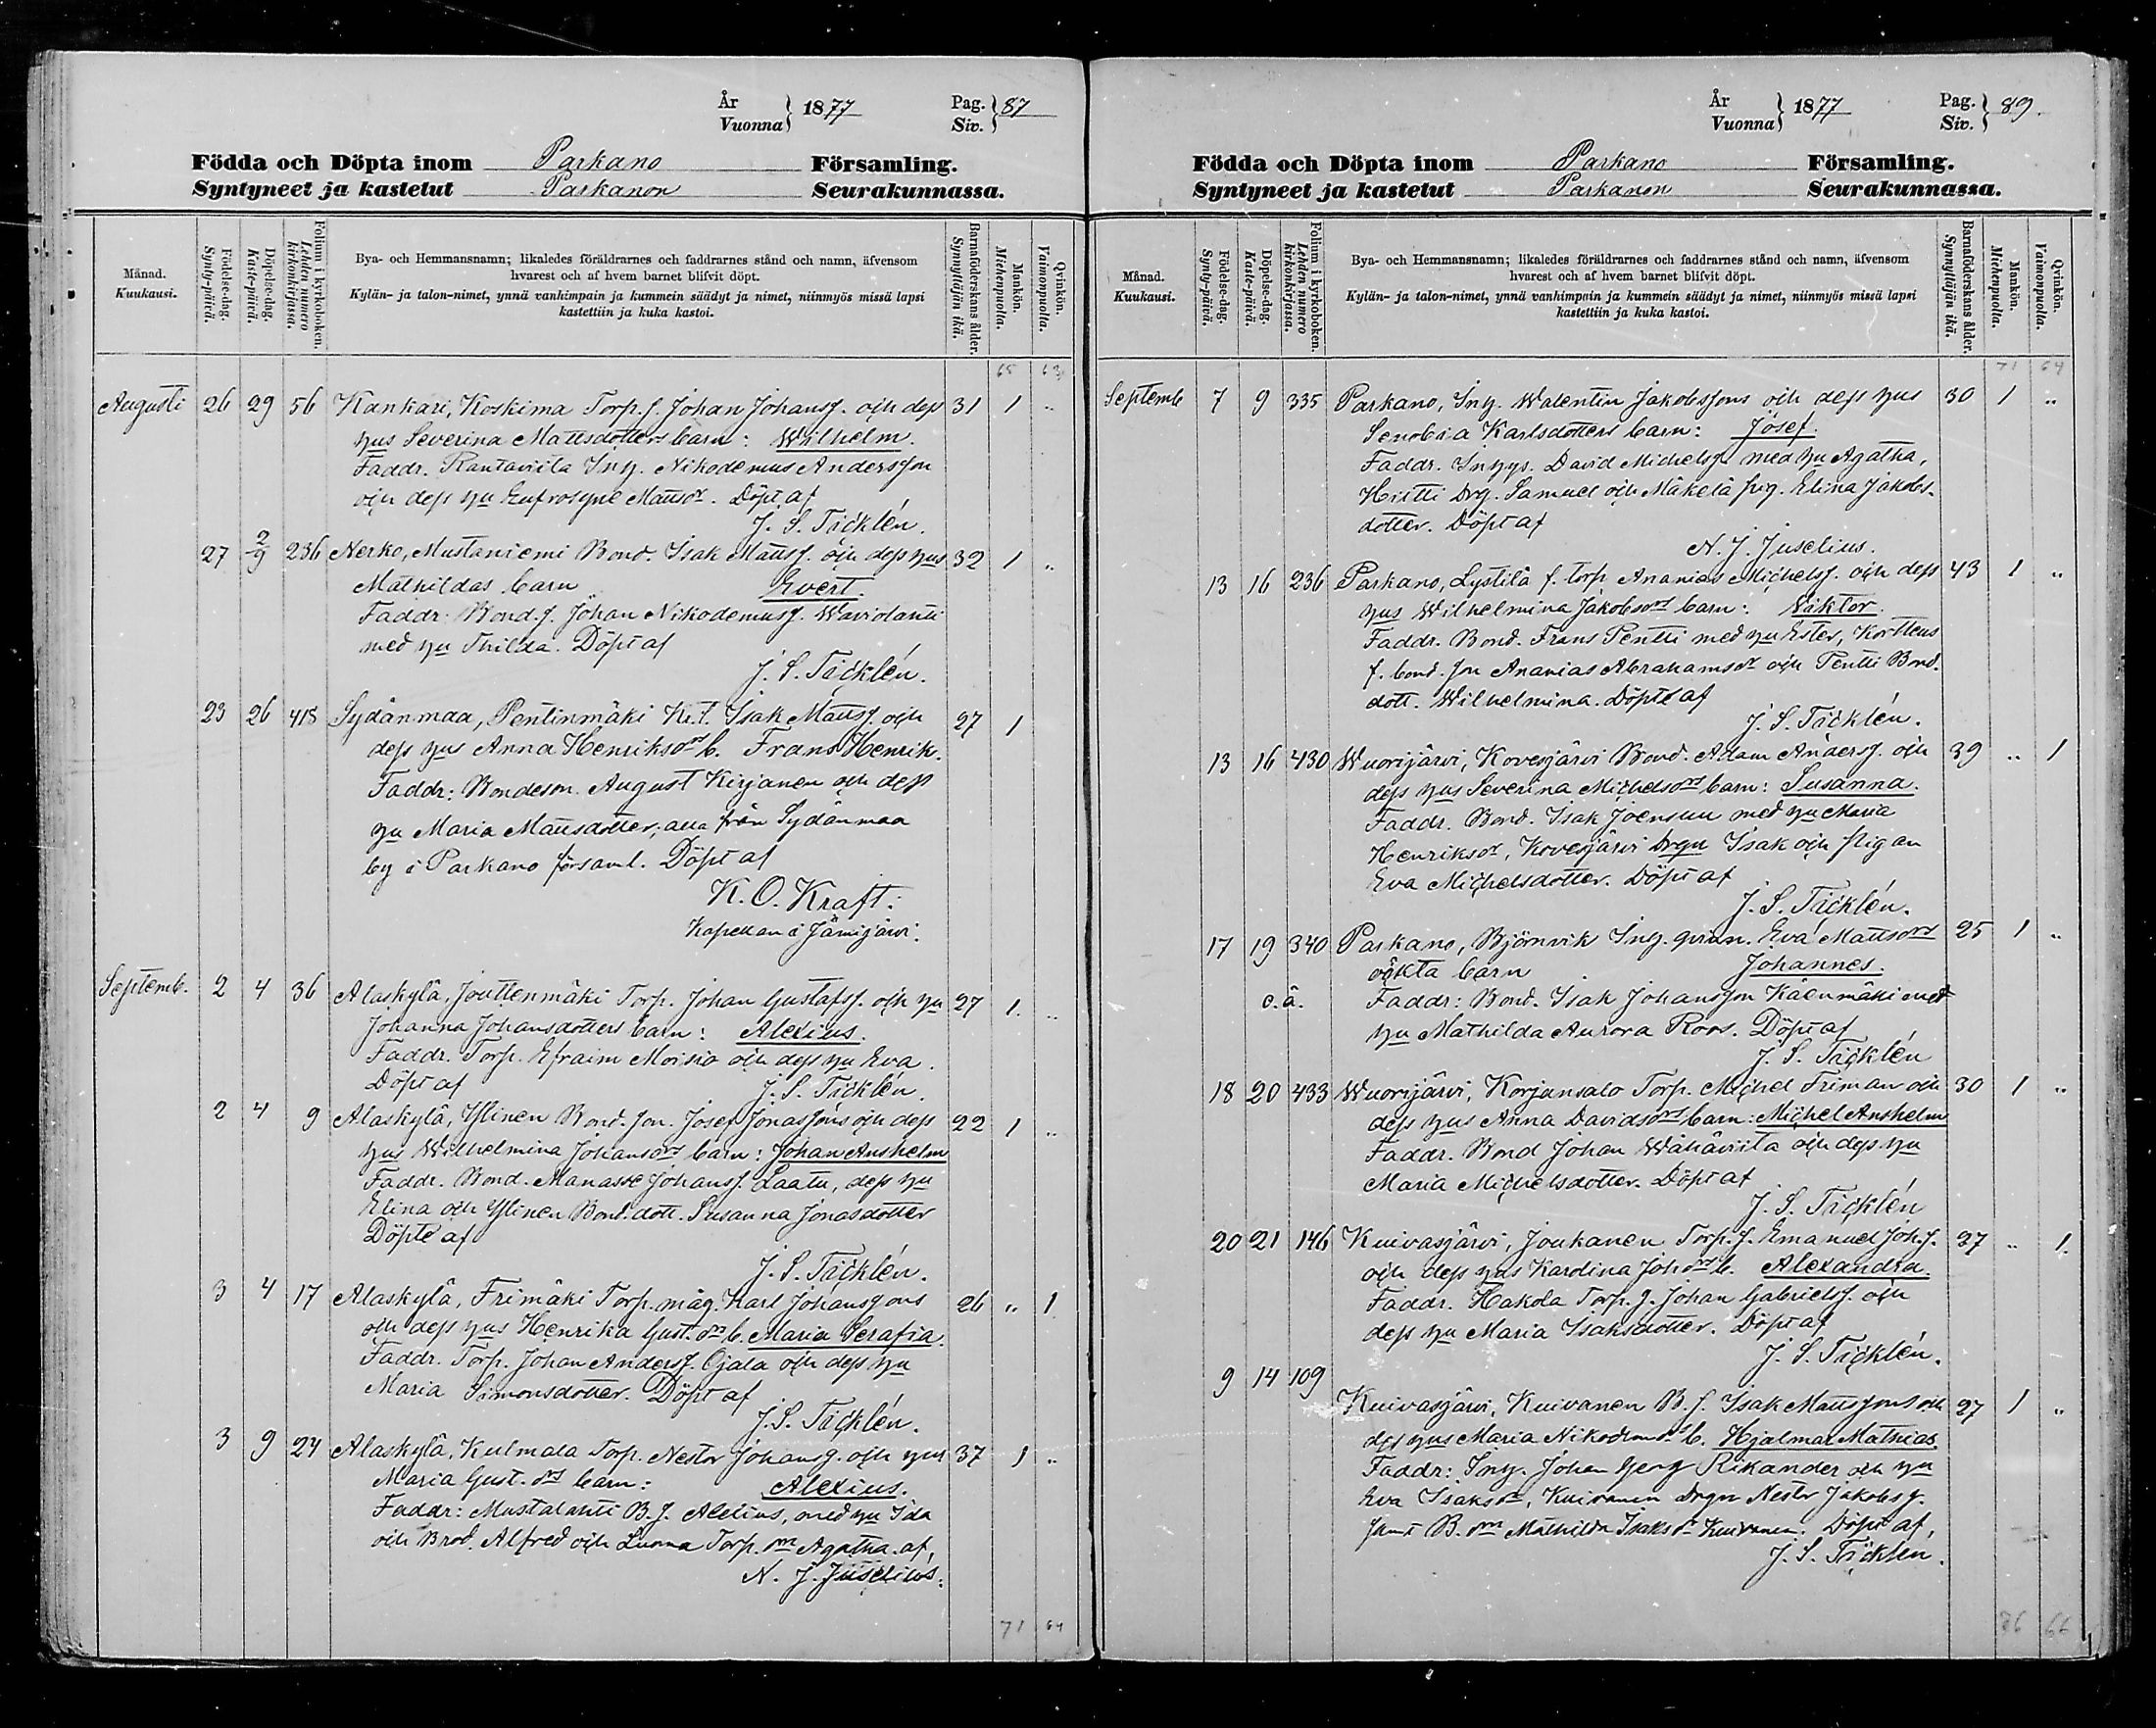 År
Vuonna } 1877 Pag.
Siv. } 87
Födda och Döpta inom Parkano Församling.
Syntyneet ja kastetut Parkanon Seurakunnassa.
Månad.
Kuukausi.
Födelse-dag.
Synty-päivä.
Döpelse-dag.
Kaste-päivä.
Folium i kyrkoboken.
Lehden numero kirkonkirjassa.
Bya- och Hemmansnamn; likaledes föräldrarnes och faddrarnes stånd och namn, äfvensom
hvarest och af hvem barnet blifvit döpt.
Kylän- ja talon-nimet, ynnä vanhimpain ja kummein säädyt ja nimet, niinmyös missä lapsi
kastettiin ja kuka kastoi.
Barnaföderskans ålder.
Synnyttäjän ikä.
Mankön.
Miehenpuolla.
Qvinkön.
Vaimonpuolla.
65 63
Augusti 26 29 56 Kankari, Koskima Torp. f. Johan Johansf. och dess 31 1 ..
hus Severina Mattsdotters barn: Wilhelm.
Faddr. Rantaviita Inh. Nikodemus Andersson
och dess hu Eufrosyne Mattsdr. Döpt af
J. S. Ticklén.
27 2/9 236 Nerko, Mustaniemi Bond. Isak Mattsf. och dess hus 32 1 ..
Mathildas barn Evert.
Faddr. Bond. f. Johan Nikodemusf. Waviolanti
med hu Thilda. Döpt af
J. S. Ticklén.
23 26 418 Sydänmaa, Pentinmäki Isak Mattsf. och 27 1
dess hus Anna Henriksdrs b. Frans Henrik.
Faddr: Bondeson August Kirjanen och dess
hu Maria Mattsdotter, alla från Sydänmaa
by i Parkano församl. Döpt af
K. O. Kraft.
Kapellan i Jämijärvi.
Septemb. 2 4 36 Alaskylä, Jouttenmäki Torp. Johan Gustafsf. och hu 27 1. ..
Johanna Johansdotters barn: Alexius.
Faddr. Torp. Efraim Moisio och dess hu Eva.
Döpt af J. S. Ticklén.
2 4 9 Alaskylä, Ylinen Bond. son. Josef Jonassons och dess 22 1 ..
hus Wilhelmina Johansdrs barn: Johan Anshelm
Faddr. Bond. Manasse Johansf. Laatu, dess hu
Elina och Ylinen Bond. dott. Susanna Jonasdotter
Döpte af
J. S. Ticklén.
3 4 17 Alaskylä, Frimäki Torp. måg. Karl Johanssons 26 .. 1
och dess hus Henrika Gust. drs b. Maria Serafia.
Faddr. Torp. Johan Andersf. Ojala och dess hu
Maria Simonsdotter. Döpt af
J. S. Ticklén.
3 9 24 Alaskylä, Kulmala Torp. Nestor Johansf. och hus 37 1 ..
Maria Gust. drs barn: Alexius.
Faddr: Mustalahti B. f. Alexius, med hu Ida
och Brod. Alfred och Luoma Torp. drn Agatha. af,
N. J. Juselius.
71 64
År
Vuonna } 1877 Pag.
Siv. } 89.
Födda och Döpta inom Parkano Församling.
Syntyneet ja kastetut Parkanon Seurakunnassa.
Månad.
Kuukausi.
Födelse-dag.
Synty-päivä.
Döpelse-dag.
Kaste-päivä.
Folium i kyrkoboken.
Lehden numero kirkonkirjassa.
Bya- och Hemmansnamn; likaledes föräldrarnes och faddrarnes stånd och namn, äfvensom
hvarest och af hvem barnet blifvit döpt.
Kylän- ja talon-nimet, ynnä vanhimpain ja kummein säädyt ja nimet, niinmyös missä lapsi
kastettiin ja kuka kastoi.
Barnaföderskans ålder.
Synnyttäjän ikä.
Mankön.
Miehenpuolla.
Qvinkön.
Vaimonpuolla.
71 64
Septemb. 7 9 335 Parkano, Inh. Walentin Jakobssons och dess hus 30 1 ..
Senobia Karlsdotters barn: Josef.
Faddr. Inhys. David Michelsf. med hu Agatha,
Hirtti Drg. Samuel och Mäkelä pig. Elina Jakobs-
dotter. Döpt af
N. J. Juselius.
13 16 236 Parkano, Lystilä f. torp Ananias Michelsf. och dess 43 1 ..
hus Wilhelmina Jakobsdrs barn: Wiktor.
Faddr. Bond. Frans Pentti med hu Ester, Korttens
f. bond. son Ananias Abrahamsdr och Pentti Bond.
dott. Wilhelmina. Döpte af
J. S. Ticklén.
13 16 430 Wuorijärvi, Kovesjärvi Bond. Adam Andersf. och 39 .. 1
dess hus Severina Michelsdrs barn: Susanna.
Faddr. Bond. Isak Joensuu med hu Maria
Henriksdr, Kovesjärvi drgn Isak och pigan
Eva Michelsdotter. Döpt af
J. S. Ticklén.
17 19 340 Parkano, Björnvik Inh. qvinn. Eva Mattsdrs 25 1 ..
oäkta barn Johannes.
o.ä. Faddr: Bond. Isak Johansson Käenmäki med
hu Mathilda Aurora Roos. Döpt af
J. S. Ticklén
18 20 433 Wuorijärvi, Korjunsalo Torp. Michel Friman och 30 1 ..
dess hus Anna Davidsdrs barn: Michel Anshelm
Faddr. Bond Johan Wähäviita och dess hu
Maria Michelsdotter. Döpt af
J. S. Ticklén
20 21 146 Kuivasjärvi, Joukanen Torp. f. Emanuel Joh. f. 27 .. 1.
och dess hus Kardina Johdrs b. Alexandra.
Faddr. Hakola Torp. f. Johan Gabrielsf. och
dess hu Maria Isaksdotter. Döpt af
J. S. Ticklén.
9 14 109
Kuivasjärvi, Kuivanen B. f. Isak Mattssons och 27 1 ..
dess hus Maria Nikodemdrs b. Hjalmar Mathias.
Faddr: Inh. Johan Georg Rikander och hu
Eva Isaksdr, Kuivanen drgn Nestor Jakobsf.
samt B. drn Mathilda Isaksdr Kuivanen. Döpt af,
J. S. Ticklén.
76 66